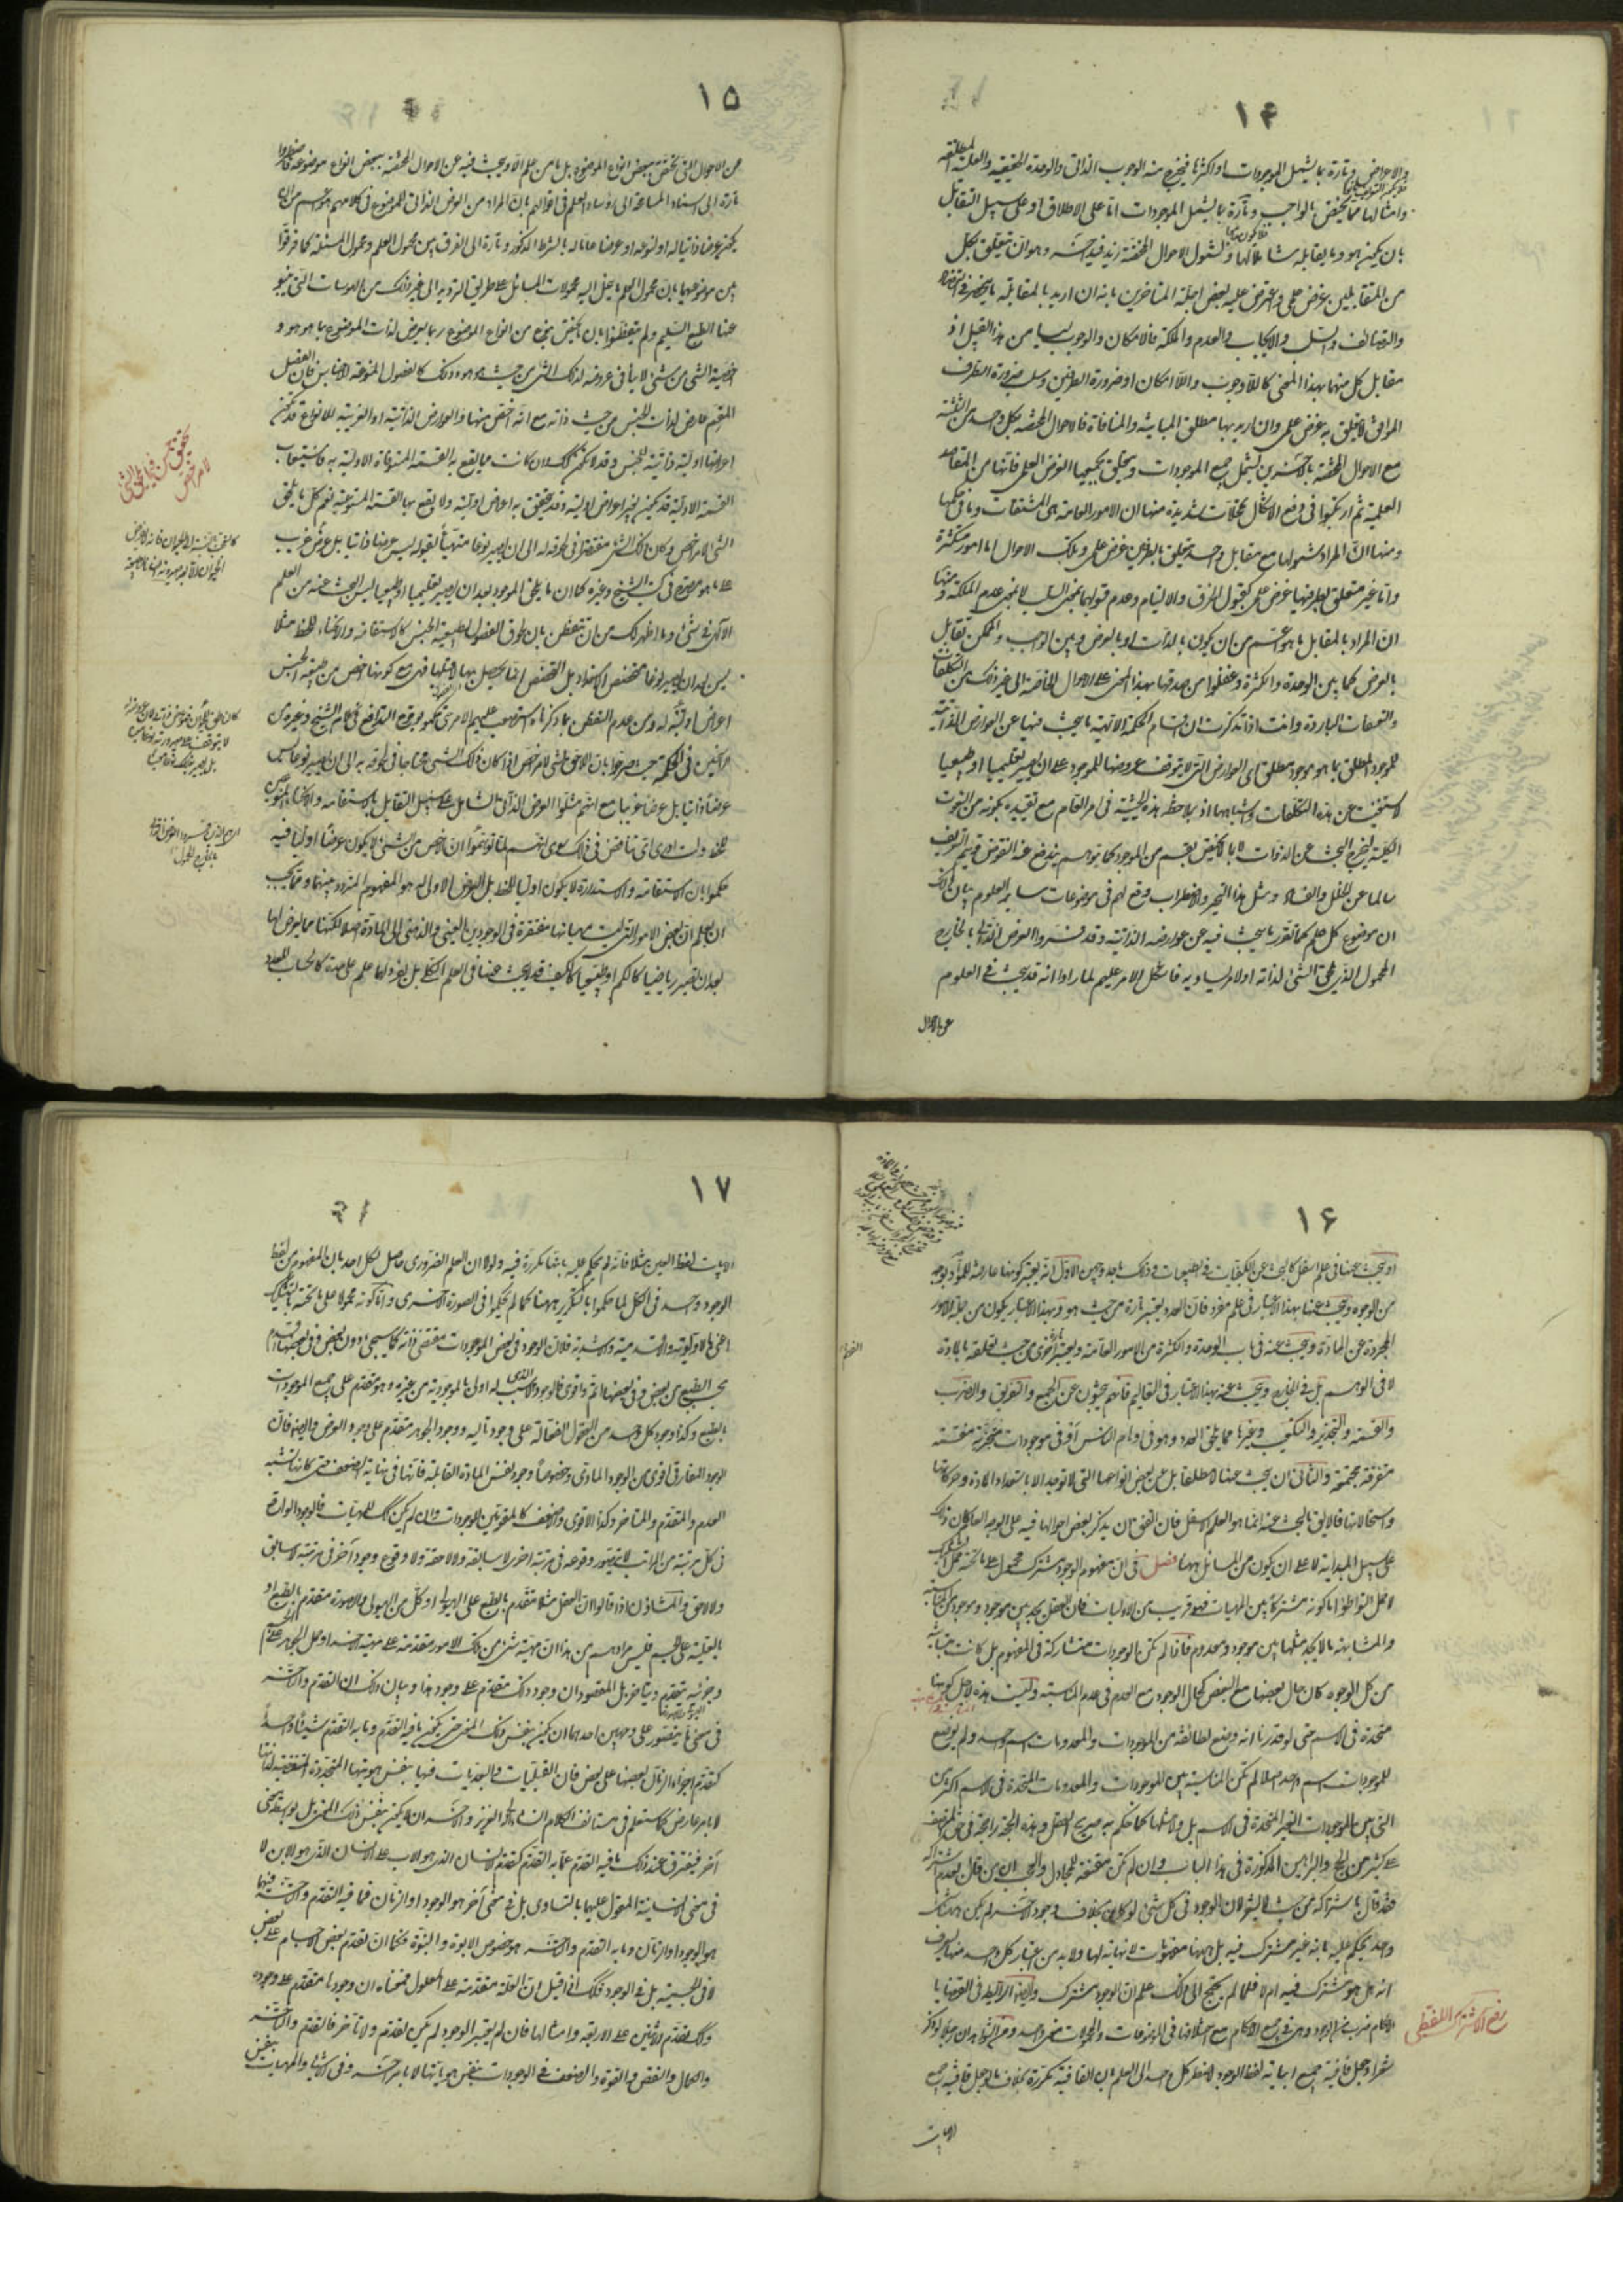 ۱۴
والاعراض وتارة بما يشمل الموجودات او اكثرها فيخرج منه الوجوب الذاتى والوحدة الحقيقية والعلية المطلقة
وامثالها مما يختص بالواجب وتارة بما يشمل الموجودات اما على الاطلاق او على سبيل التقابل
بان يكون هو وما يقابله شاملا لها ولشمول الاحوال المختصة زيد قيد آخر وهو ان يتعلق بكل
من المتقابلين غرض علمى واعترض عليه بعض اجلة المتاخرين بانه ان اريد بالمقابلة ما ينحصر فى التضاد
والتضايف والسلب والايجاب والعدم والملكة فالامكان والوجوب ليسا من هذا القبيل اذ
مقابل كل منهما بهذا المعنى كاللاوجوب واللاامكان او ضرورة الطرفين وسلب ضرورة الطرف
الموافق لا يتعلق به غرض علمى وان اريد بها مطلق المباينة والمنافاة فالاحوال المختصة بكل واحد من الثلثة
مع الاحوال المختصة بالآخرين يشمل جميع الموجودات ويتعلق بجميعها الغرض العلمى فانها من المقاصد
العلمية ثم ارتكبوا فى رفع الاشكال تمحلات شديدة منها ان الامور العامة هى المشتقات وما فى حكمها
ومنها ان المراد شمولها مع مقابل واحد يتعلق بالطرفين غرض علمى وتلك الاحوال اما امور متكثرة
واما غير متعلق بطرفيها غرض علمى كقبول الخرق والالتيام وعدم قبولهما بمعنى السلب لا بمعنى عدم الملكة ومنها
ان المراد بالتقابل ما هو اعم من ان يكون بالذات او بالعرض وبين الواجب والممكن تقابل
بالعرض كما بين الوحدة والكثرة وغفلوا من صدقها بهذا المعنى على الاحوال الخاصة الى غير ذلك من التكلفات
والتعسفات الباردة وانت اذا تذكرت ان اقسام الحكمة الالهية ما يبحث فيها عن العوارض الذاتية
للموجود المطلق بما هو موجود مطلق اى العوارض التى لا يتوقف عروضها للموجود على ان يصير تعليميا او طبيعيا
لاستغنيت عن هذه التكلفات واشباهها اذ بملاحظة هذه الحيثية فى الامر العام مع تقييده بكونه من النعوت
الكلية ليخرج البحث عن الذوات لا بما يختص بقسم من الموجود كما توهم يندفع عنه النقوض ويتم التعريف
سالما عن الخلل والفساد ومثل هذا التحير والاضطراب وقع لهم فى موضوعات ساير العلوم بيان ذلك
ان موضوع كل علم كما تقرر ما يبحث فيه عن عوارضه الذاتية وقد فسروا العرض الذاتى بالخارج
المحمول الذى يلحق الشئ لذاته او لامر يساويه فاشكل الامر عليهم لما راوا انه قد يبحث فى العلوم
عن الاحوال
۱۵
عن الاحوال التى يختص ببعض انواع الموضوع بل ما من علم الا ويبحث فيه عن الاحوال المختصة ببعض انواع موضوعه فاضطروا
تارة الى اسناد المسامحة الى رؤساء العلم فى اقوالهم بان المراد من العرض الذاتى للموضوع فى كلامهم هو اعم من ان
يكون عرضا ذاتيا له او لنوعه او عرضا عاما له بالشرط المذكور وتارة الى الفرق بين محمول العلم ومحمول المسئلة كما فرقوا
بين موضوعيهما بان محمول العلم ما ينحل اليه محمولات المسائل على طريق الترديد الى غير ذلك من الهوسات التى ينبو
عنها الطبع السليم ولم يتفطنوا بان ما يختص بنوع من انواع الموضوع ربما يعرض لذات الموضوع بما هو هو و
اخصية الشئ من شئ لا ينافى عروضه لذلك الشئ من حيث هو هو وذلك كالفصول المنوعة للاجناس فان الفصل
المقسم عارض لذات الجنس من حيث ذاته مع انه اخص منها والعوارض الذاتية او الغريبة للانواع قد يكون
اعراضا اولية ذاتية للجنس وقد لا يكون كذلك وان كانت مما يقع به القسمة المستوفاة الاولية به فاستيعاب
القسمة الاولية قد يكون بغير اعراض اولية وقد يتحقق به اعراض اولية ولا يقع بها القسمة المستوعبة نعم كل ما يلحق
الشئ لامر اخص وكان ذلك الشئ مفتقرا فى لحوقه له الى ان يصير نوعا متهيأ لقبوله ليس عرضا ذاتيا بل عرض غريب
على ما هو مصرح فى كتب الشيخ وغيره كما ان ما يلحق الموجود بعد ان يصير تعليميا او طبيعيا ليس البحث عنه من العلم
الالهى فى شئ وما اظهر لك من ان تتفطن بان لحوق الفصول لطبيعة الجنس كالاستقامة والانحناء للخط مثلا
ليس بعد ان يصير نوعا متخصص الاستعداد بل التخصص انما يحصل بها لا قبلها فهى مع كونها اخص من طبيعة الجنس
اعراض اولية له ومن عدم التفطن بما ذكرناه استصعب عليهم الامر حتى حكموا بوقوع التدافع فى كلام الشيخ وغيره من
الراسخين فى الحكمة حيث صرحوا بان اللاحق لشئ لامر اخص اذا كان ذلك الشئ محتاجا فى لحوقه به الى ان يصير نوعا ليس
عرضا ذاتيا بل عرضا غريبا مع انهم مثلوا العرض الذاتى الشامل على سبيل التقابل بالاستقامة والانحناء المنوعين
للخط ولست ادرى اى تناقض فى ذلك سوى انهم لما توهموا ان الاخص من الشئ لا يكون عرضا اوليا فيه
حكموا بان الاستقامة والاستدارة لا يكون اوليا للخط بل العرض الاولى له هو المفهوم المردد بينهما ومما يجب
ان يعلم ان بعض الامور التى ليست مهياتها مفتقرة فى الوجودين العينى والذهنى الى المادة اصلا لكنها مما يعرض لها
بعد ان تصير رياضيا كالكم او طبيعيا كالكيف قد يبحث عنها فى العلم الكلى بل يفرد لها علم على حدة كالحساب للعدد
۱۶
او يبحث عنها فى علم اسفل كالبحث عن الكيفيات فى الطبيعيات وذلك باحد وجهين الاول انه يعتبر كونها عارضة للمواد بوجه
من الوجوه ويبحث عنها بهذا الاعتبار فى علم مفرد فان العدد يعتبر تارة من حيث هو وبهذا الاعتبار يكون من جملة الامور
المجردة عن المادة ويبحث عنه فى باب الوحدة والكثرة من الامور العامة ويعتبر تارة اخرى من حيث تعلقه بالمادة
لا فى الوهم بل فى الخارج ويبحث عنه بهذا الاعتبار فى التعاليم فانهم يبحثون عن الجمع والتفريق والضرب
والقسمة والتجذير والتكعيب وغيرها مما يلحق العدد وهو فى اوهام الناس او فى موجودات متحركة منقسمة
متفرقة مجتمعة والثانى ان يبحث عنها لا مطلقا بل عن بعض انواعها التى لا توجد الا باستعداد المادة وحركاتها
واستحالاتها فالاليق بالبحث عنه انما هو العلم الاسفل فان اتفق ان يذكر بعض احوالها فيه على الوجه العام كان ذلك
على سبيل المبدئية لا على ان يكون من المسائل ههنا فصل فى ان مفهوم الوجود مشترك محمول على ما تحته حمل التشكيك
لا حمل التواطؤ اما كونه مشتركا بين المهيات فهو قريب من الاوليات فان العقل يجد بين موجود وموجود من المناسبة
والمشابهة ما لا يجد مثلها بين موجود ومعدوم فاذا لم تكن الموجودات متشاركة فى المفهوم بل كانت متباينة
من كل الوجوه كان حال بعضها مع البعض كحال الوجود مع العدم فى عدم المناسبة وليست هذه لاجل كونها
متحدة فى الاسم حتى لو قدرنا انه وضع لطائفة من الموجودات والمعدومات اسم واحد ولم يوضع
للموجودات اسم واحد اصلا لم تكن المناسبة بين الموجودات والمعدومات المتحدة فى الاسم اكثر من
التى بين الموجودات الغير المتحدة فى الاسم بل ولا مثلها كما حكم به صريح العقل وهذه الحجة راجحة فى حق المنصف
على كثير من الحجج والبراهين المذكورة فى هذا الباب وان لم تكن مقنعة للمجادل والعجب ان من قال بعدم اشتراكه
فقد قال باشتراكه من حيث لا يشعر لان الوجود فى كل شئ لو كان بخلاف وجود الآخر لم يكن ههنا شئ
واحد يحكم عليه بانه غير مشترك فيه بل ههنا مفهومات لا نهاية لها ولا بد من اعتبار كل واحد منها ليعرف
انه هل هو مشترك فيه ام لا فلما لم يحتج الى ذلك علم ان الوجود مشترك وايضا الرابطة فى القضايا
والاحكام ضرب من الوجود وهى فى جميع الاحكام مع اختلافها فى الموضوعات والمحمولات معنى واحد ومن الشواهد ان رجلا لو ذكر
شعرا وجعل قافية جميع ابياته لفظ الوجود لاضطر كل احد الى العلم بان القافية مكررة بخلاف ما لو جعل قافية جميع
الابيات
رفع الاشتراك اللفظى
۱۷
الابيات لفظ العين مثلا فانه لم يحكم عليه بانها مكررة فيه ولولا ان العلم الضرورى حاصل لكل احد بان المفهوم من لفظ
الوجود واحد فى الكل لما حكموا بالتكرير ههنا كما لم يحكموا فى الصورة الاخرى واما كونه محمولا على ما تحته بالتشكيك
اعنى بالاولوية والاقدمية والاشدية فلان الوجود فى بعض الموجودات مقتضى ذاته كما سيجئ دون بعض وفى بعضها اقدم
بحسب الطبع من بعض وفى بعضها اتم واقوى فالوجود الذى لا سبب له اولى بالموجودية من غيره وهو متقدم على جميع الموجودات
بالطبع وكذا وجود كل واحد من العقول الفعالة على وجود تاليه ووجود الجوهر متقدم على وجود العرض وايضا فان
الوجود المفارقى اقوى من الوجود المادى وخصوصا وجود نفس المادة القابلة فانها فى نهاية الضعف حتى كانها تشبه
العدم والمتقدم والمتاخر وكذا الاقوى والاضعف كالمقومين للوجودات وان لم يكن كذلك للمهيات فالوجود الواقع
فى كل مرتبة من المراتب لا يتصور وقوعه فى مرتبة اخرى لا سابقة ولا لاحقة ولا وقوع وجود آخر فى مرتبته لا سابق
ولا لاحق والمشاؤن اذا قالوا ان العقل مثلا متقدم بالطبع على الهيولى او كل من الهيولى والصورة متقدم بالطبع او
بالعلية على الجسم فليس مرادهم من هذا ان مهية شئ من تلك الامور متقدمة على مهية الآخر او حمل الجوهر على الجسم
وجزئيه بتقدم وتاخر بل المقصود ان وجود ذلك متقدم على وجود هذا وبيان ذلك ان التقدم والتاخر
فى معنى ما يتصور على وجهين احدهما ان يكون بنفس ذلك المعنى حتى يكون ما فيه التقدم وما به التقدم شيئا واحدا
كتقدم اجزاء الزمان بعضها على بعض فان القبليات والبعديات فيها بنفس هوياتها المتجددة المتقضية لذاتها
لا بامر عارض كما ستعلم فى مستانف الكلام انشاء الله العزيز والآخر ان لا يكون بنفس ذلك المعنى بل بواسطة معنى
آخر فيفترق عند ذلك ما فيه التقدم عما به التقدم كتقدم الانسان الذى هو الاب على الانسان الذى هو الابن لا
فى معنى الانسانية المقول عليهما بالتساوى بل فى معنى آخر هو الوجود او الزمان فما فيه التقدم والتاخر فيهما
هو الوجود او الزمان وما به التقدم والتاخر هو خصوص الابوة والبنوة فكما ان تقدم بعض الاجسام على بعض
لا فى الجسمية بل فى الوجود فكذلك اذا قيل ان العلة متقدمة على المعلول فمعناه ان وجودها متقدم على وجوده
وكذلك تقدم الاثنين على الاربعة وامثالها فان لم يعتبر الوجود لم يكن تقدم ولا تاخر فالتقدم والتاخر
والكمال والنقص والقوة والضعف فى الوجودات بنفس هوياتها لا بامر آخر وفى الاشياء والمهيات بنفس